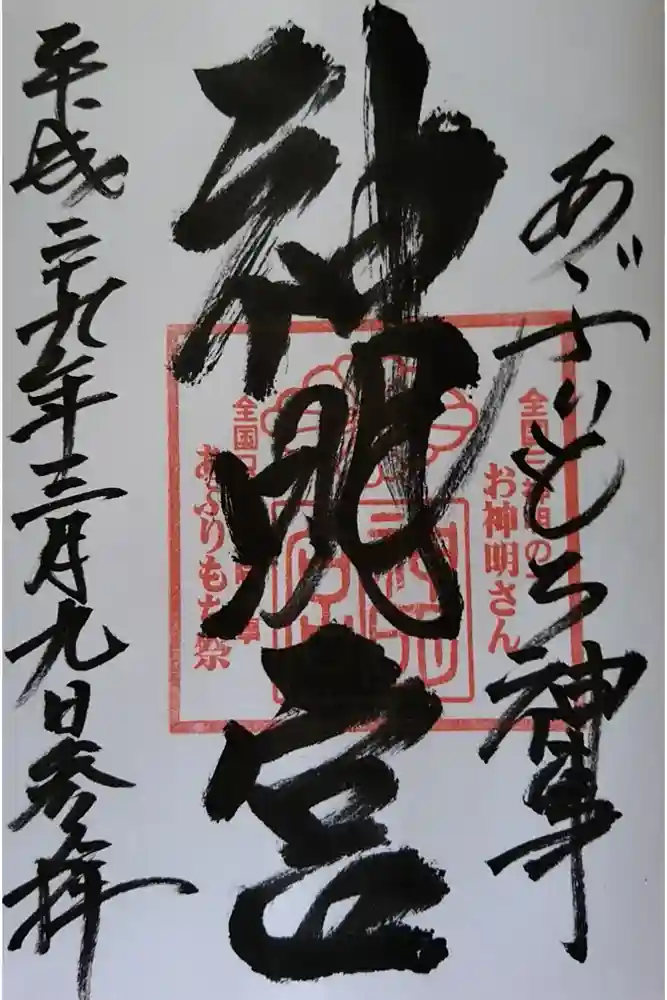 あぶりもち神事
神明宮
平成二十九年三月九日参拝
全国三神明の
お神明さん
全国
あぶりもち祭